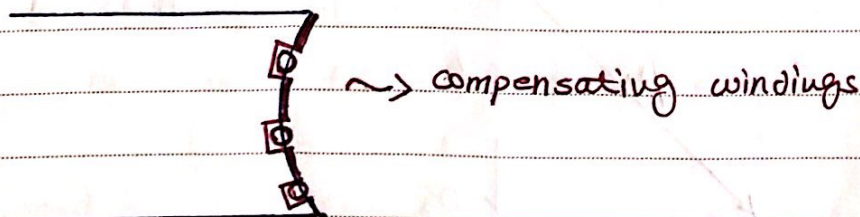 ~> compensating windings